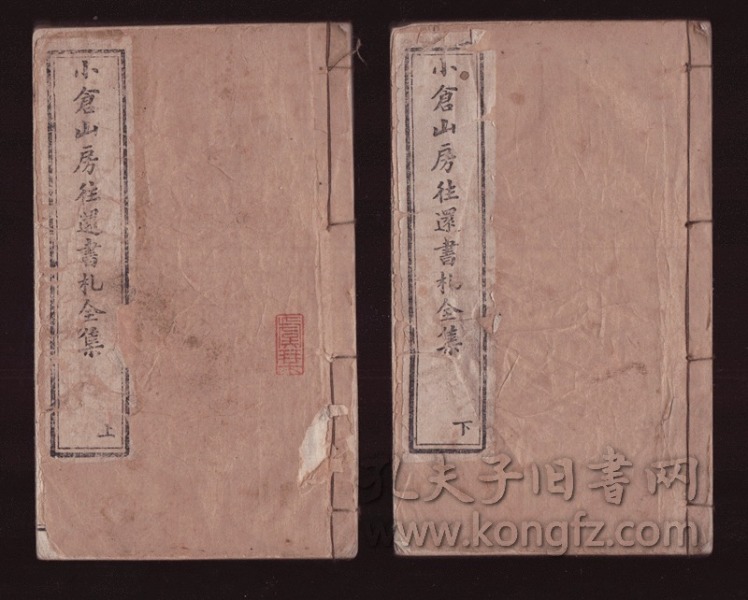 小倉山房往還書札全集
上
小倉山房往還書札全集
下
孔夫子旧书网
www.kongfz.com